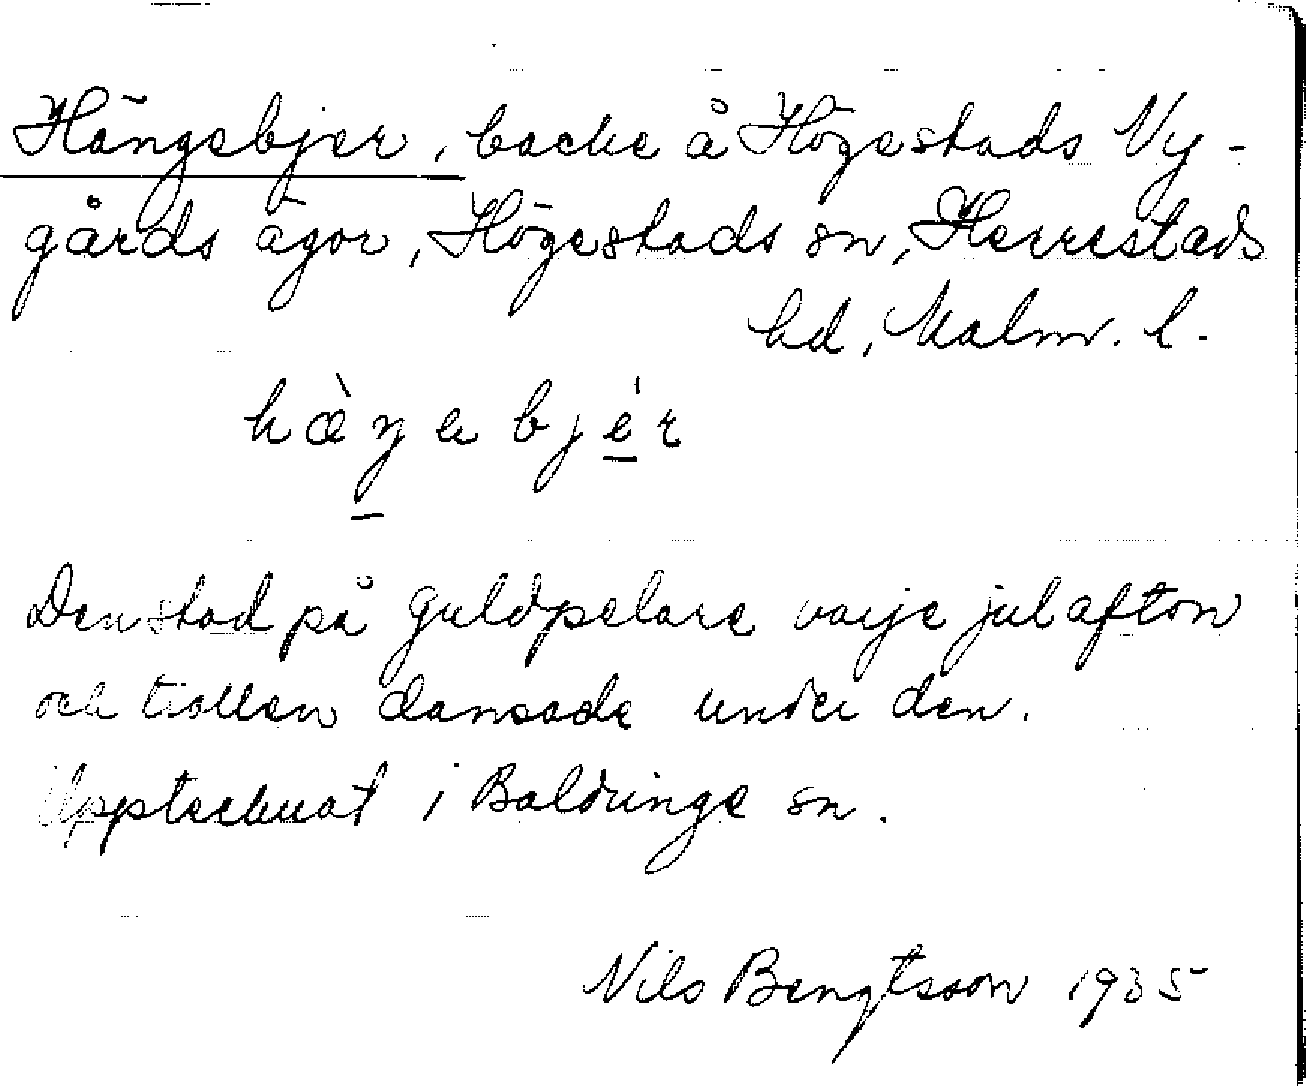 Hängebjer, backe å Högestads Ny-
gårds ägor, Högestads sn, Herrestads
hd, Malm. l.
hæ̀ŋebjér
Den stod på guldpelare varje julafton
och trollen dansade under den.
Upptecknat i Baldringe sn.
Nils Bengtsson 1935